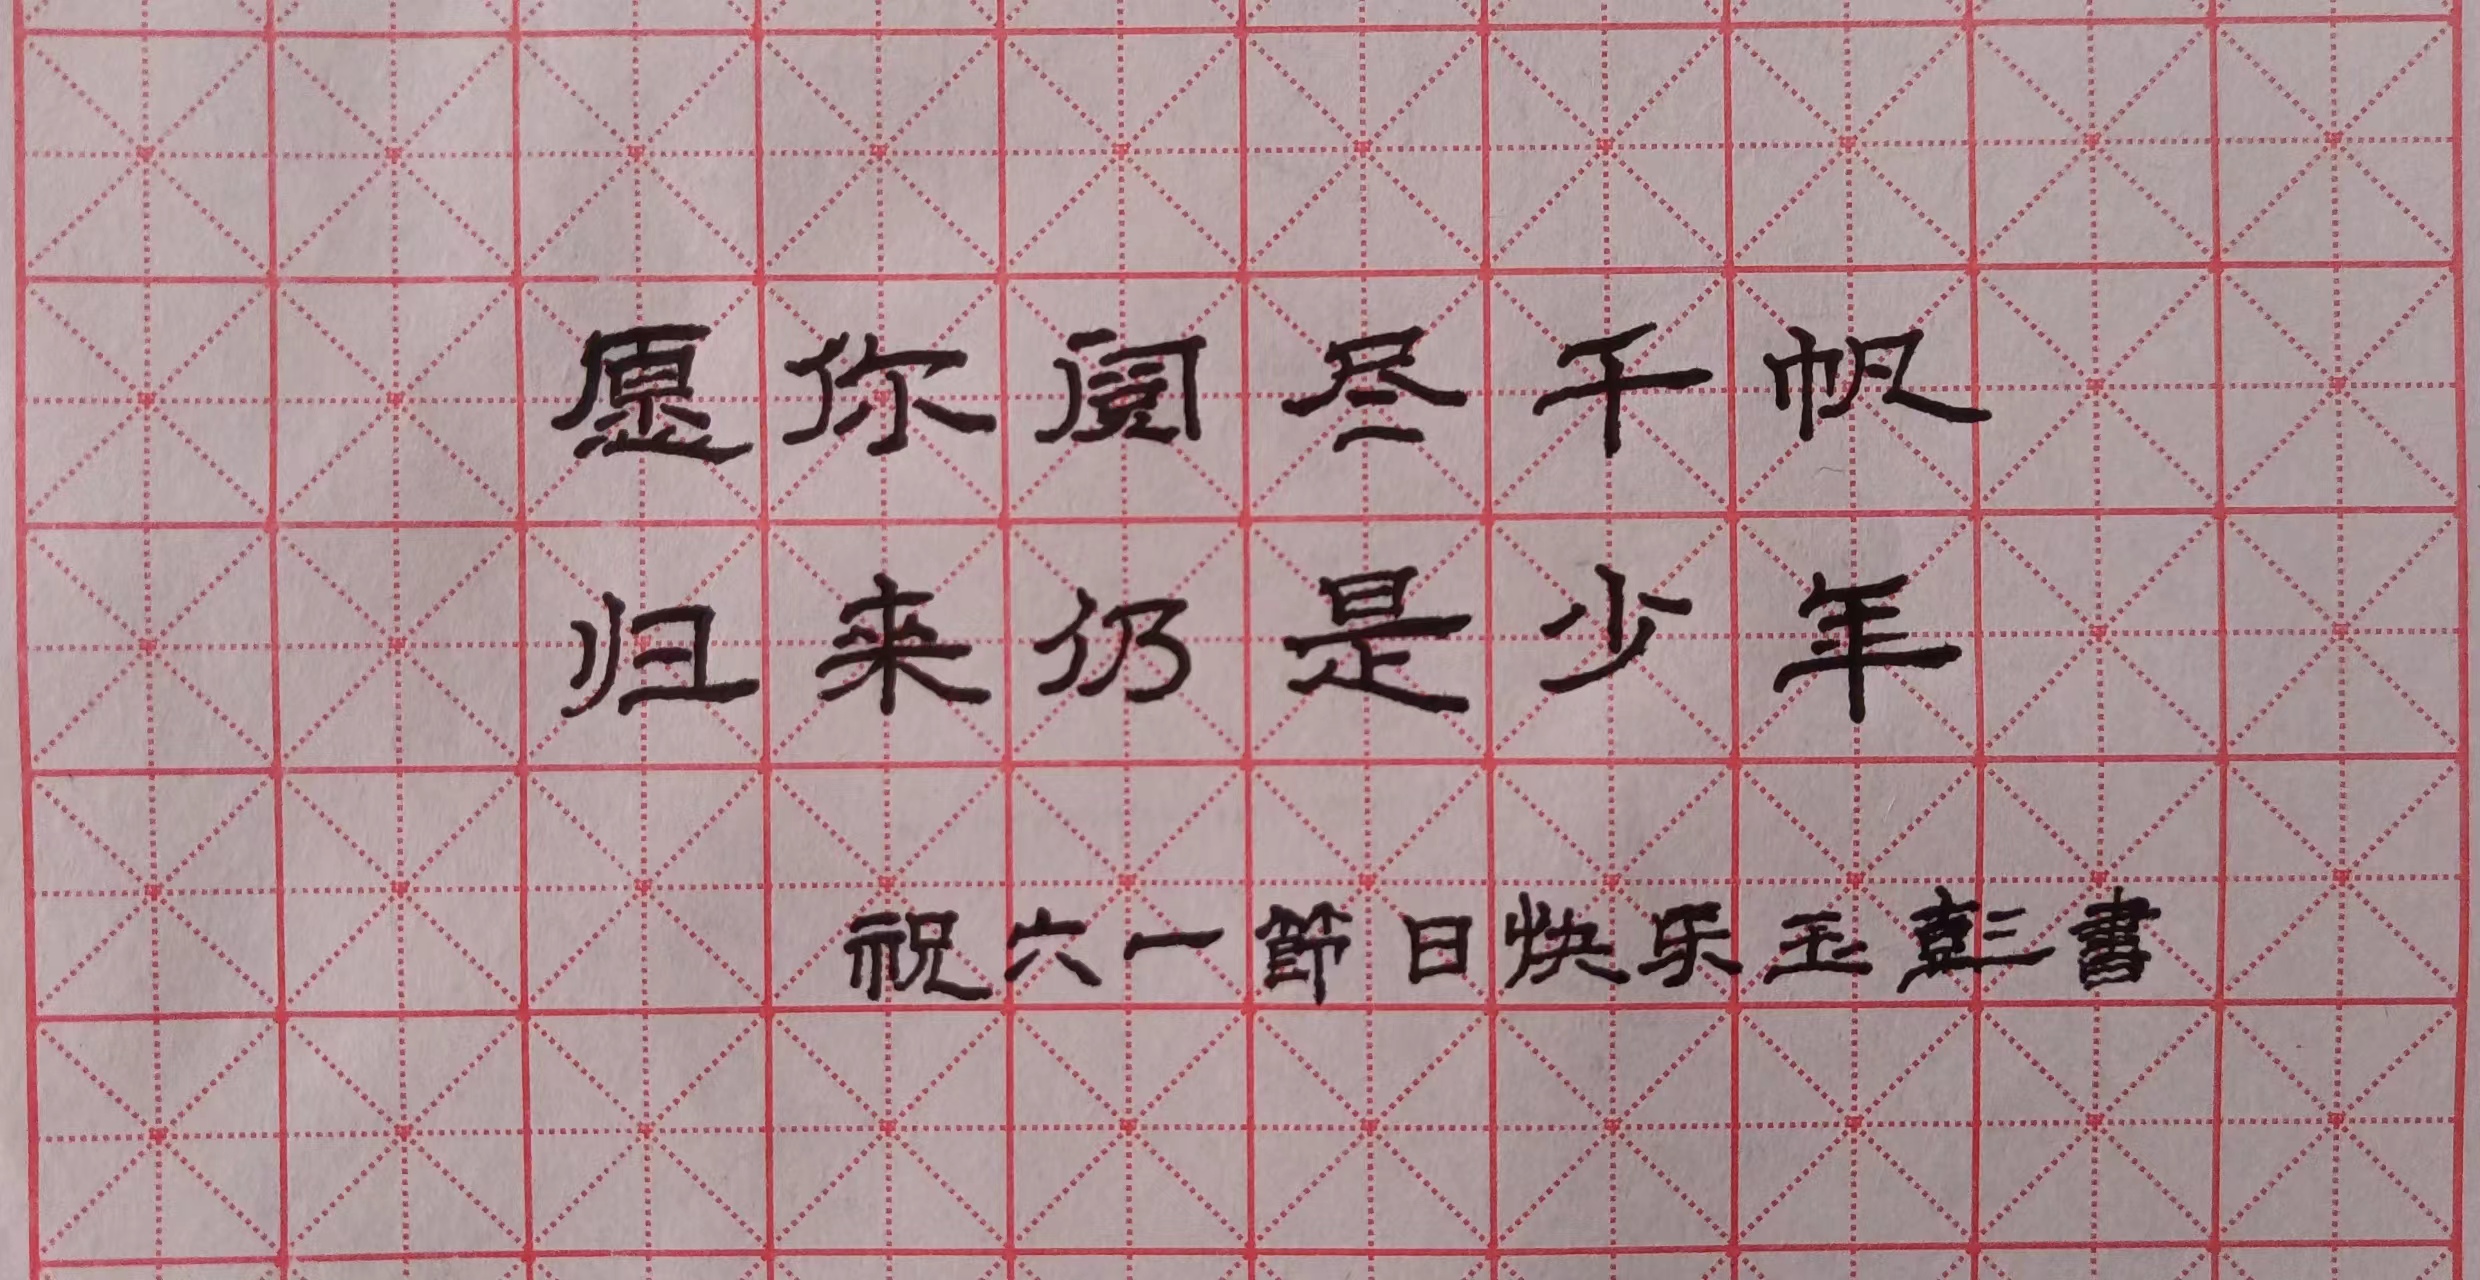 愿你阅尽千帆
归来仍是少年
祝六一節日快乐玉彭書